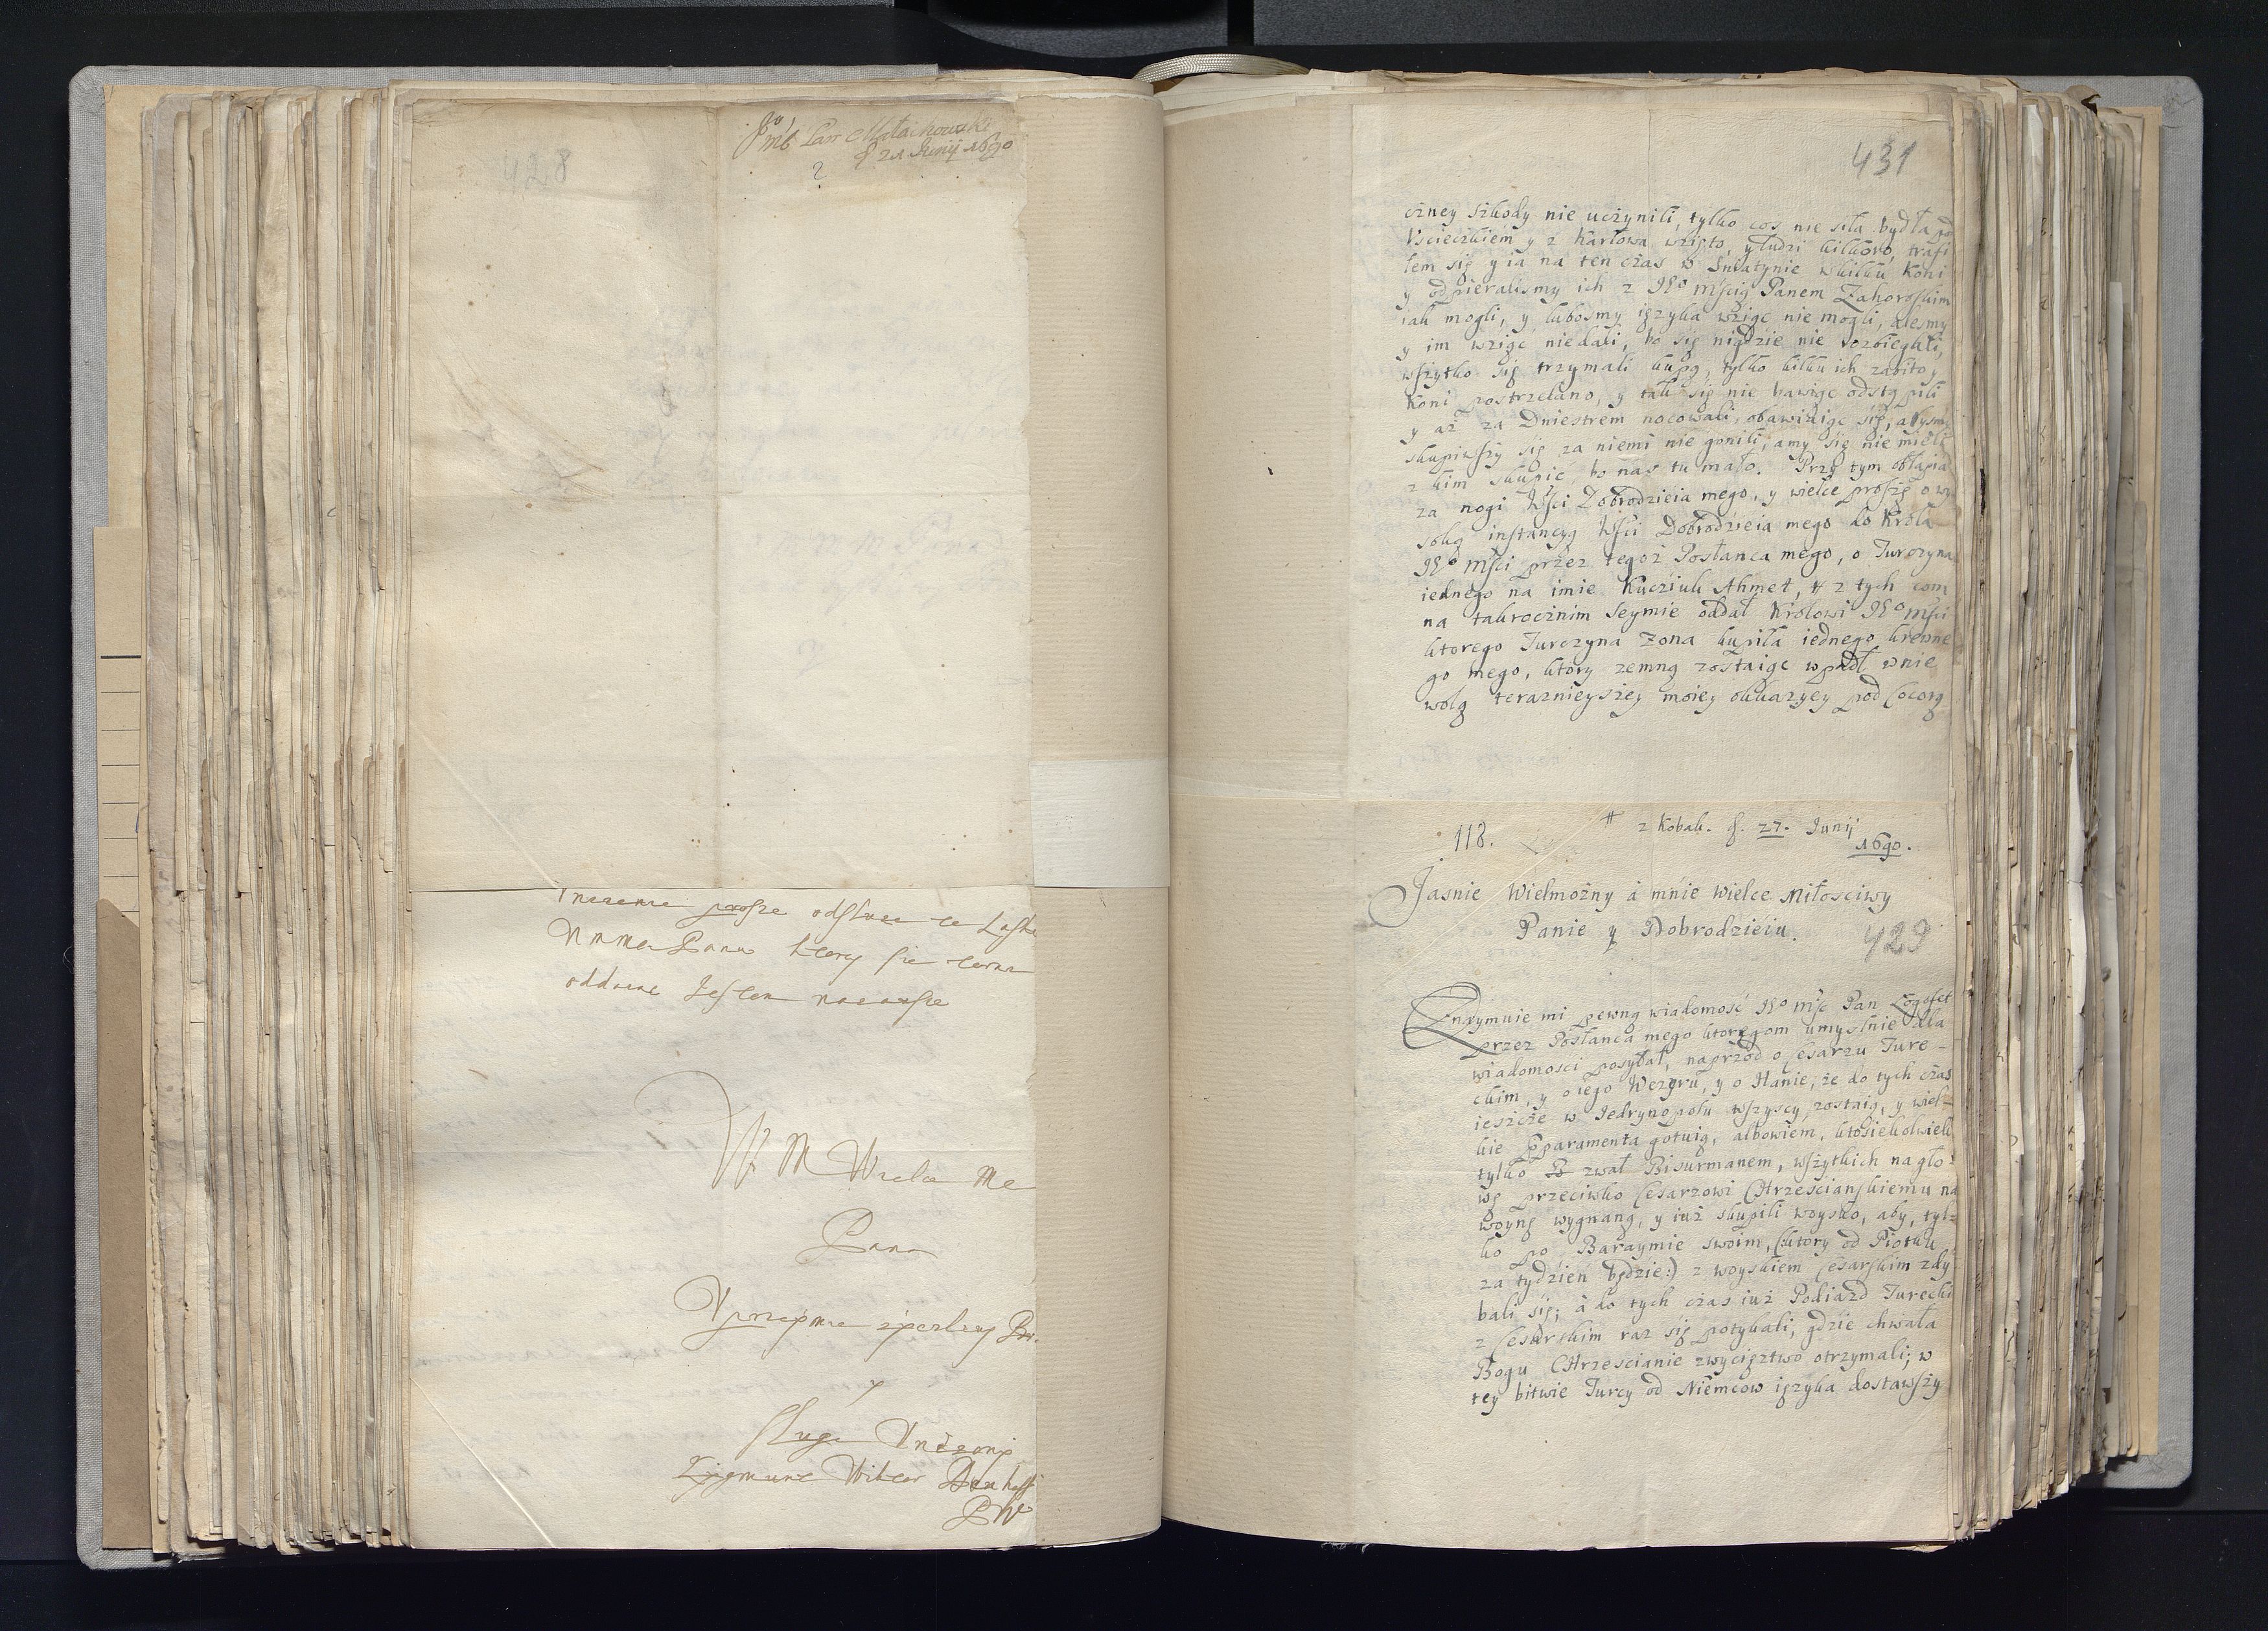 428
Pan Małachowski
21 Junij 1690
2
prosze
Pana ktory sie
oddaie Jestem
W M Wielce Me
Pana
Uprzeÿmie zyczliwy
y
Sługa Unizony
Zygmunt Wiktor
431
czney szkody nie uczynili, tylko cos nie siła bydła pod
Uscieczkiem y z Karłowa wzięto, y ludzi kilkoro, trafi
łem się y ia na ten czas w Sniatynie w kilku koni
y odpieralismy ich z Mścią Panem Zahorowskim
iak mogli, y lubosmy ięzyka wziąc nie mogli, alesmy
y im wziąć niedali, bo się nigdzie nie rozbiegali,
wszytko się trzymali kupą, tylko kilku ich zabito,
koni postrzelano, y tak się nie bawiąc odstąpili
y aż za Dniestrem nocowali, obawiaiąc się, abysmy
skupiwszy się za niemi nie gonili; amy się nie mieli
z kim skupic, bo nas tu mało. Przy tym obłapia
za nogi Wsci Dobrodzieia mego, y wielce proszę o wy
soką instancyą Wsci Dobrodzieia mego do Krola
Mści przez tegoż Posłanca mego, o Turczyna
iednego na imie Kucziuk Ahmet, # z tych com
na takrocznim Seymie oddał Krolowi Mści
ktorego Turczyna Zona kupiła iednego krewne
go mego, ktory zemną zostaiąc wpadł w nie
wolą terazniejszey moiey okkazyey pod Cocorą
118.
# z Kobak. d. 27. Junij
1690.
Jasnie Wielmożny á mnie wielce Miłosciwy
Panie y Dobrodzieiu.
429
Otrzymuie mi pewną wiadomość Mśc Pan Logofet
przez Posłanca mego ktoregom umyslnie dla
wiadomosci posyłał, naprzod o Cesarzu Ture-
ckim, y o iego Wezyru, y o Hanie; że do tych czas
ieszcze w Jedrynopolu wszyscy zostaią, y wiel-
kie apparamenta gotuią, albowiem, ktosiekolwiek
tylko zwał Bisurmanem, wszytkich na gło
wę przeciwko Cesarzowi Chrzescianskiemu na
woynę wygnano, y iuż skupili woysko, aby, tyl=
ko po Baraymie swoim, (:ktory od Piątku
za tydzień będzie:) z woyskiem Cesarskim zdy
bali się; á do tych czas iuż Podiazd Turecki
z Cesarskim raz się potykali; gdzie chwała
Bogu Chrzescianie zwycięztwo otrzymali; w
tey bitwie Turcy od Niemcow ięzyka dostawszy